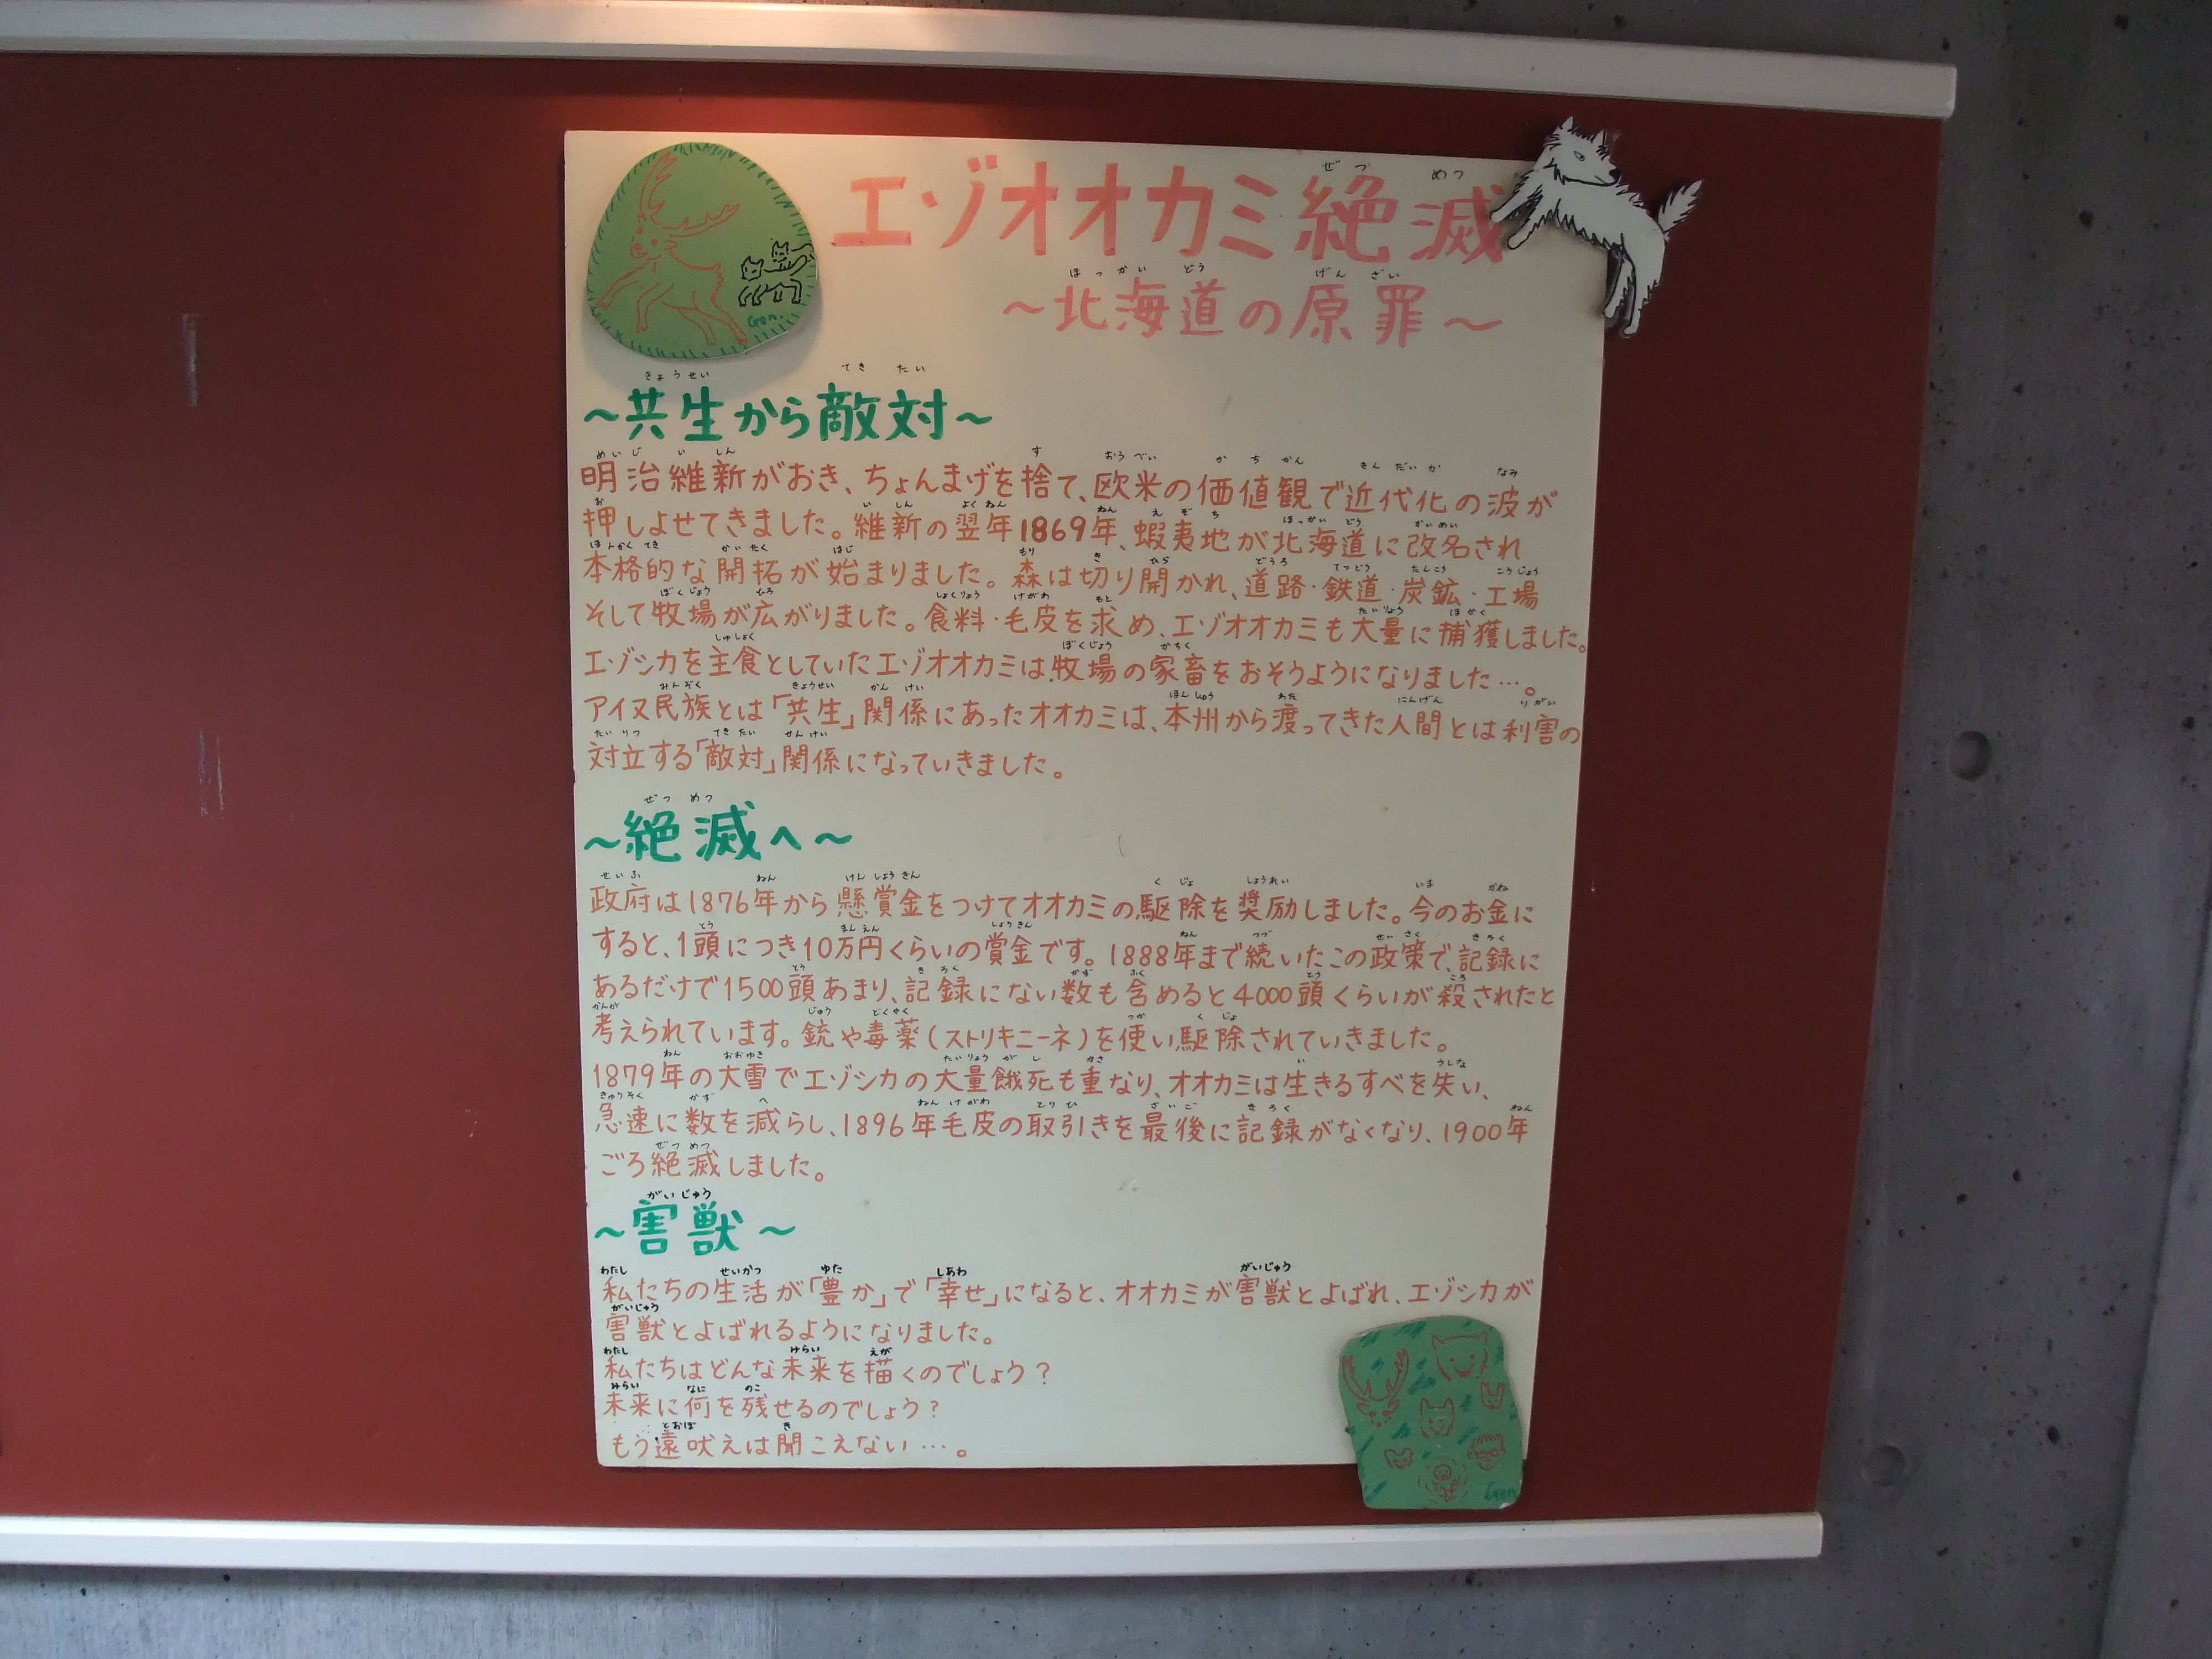 エゾオオカミ絶滅
～北海道の原罪～
～共生から敵対～
明治維新がおき、ちょんまげを捨て、欧米の価値観で近代化の波が
押しよせてきました。維新の翌年1869年、蝦夷地が北海道に改名され
本格的な開拓が始まりました。森は切り開かれ、道路・鉄道・炭鉱・工場
そして牧場が広がりました。食料・毛皮を求め、エゾオオカミも大量に捕獲しました。
エゾシカを主食としていたエゾオオカミは、牧場の家畜をおそうようになりました…。
アイヌ民族とは「共生」関係にあったオオカミは、本州から渡ってきた人間とは利害の
対立する「敵対」関係になっていきました。
～絶滅へ～
政府は1876年から懸賞金をつけてオオカミの駆除を奨励しました。今のお金に
すると、1頭につき10万円くらいの賞金です。1888年まで続いたこの政策で、記録に
あるだけで1500頭あまり、記録にない数も含めると4000頭くらいが殺されたと
考えられています。銃や毒薬(ストリキニーネ)を使い駆除されていきました。
1879年の大雪でエゾシカの大量餓死も重なり、オオカミは生きるすべを失い、
急速に数を減らし、1896年毛皮の取引きを最後に記録がなくなり、1900年
ごろ絶滅しました。
～害獣～
私たちの生活が「豊か」で「幸せ」になると、オオカミが害獣とよばれ、エゾシカが
害獣とよばれるようになりました。
私たちはどんな未来を描くのでしょう?
未来に何を残せるのでしょう?
もう遠吠えは聞こえない…。
Gen.
Gen